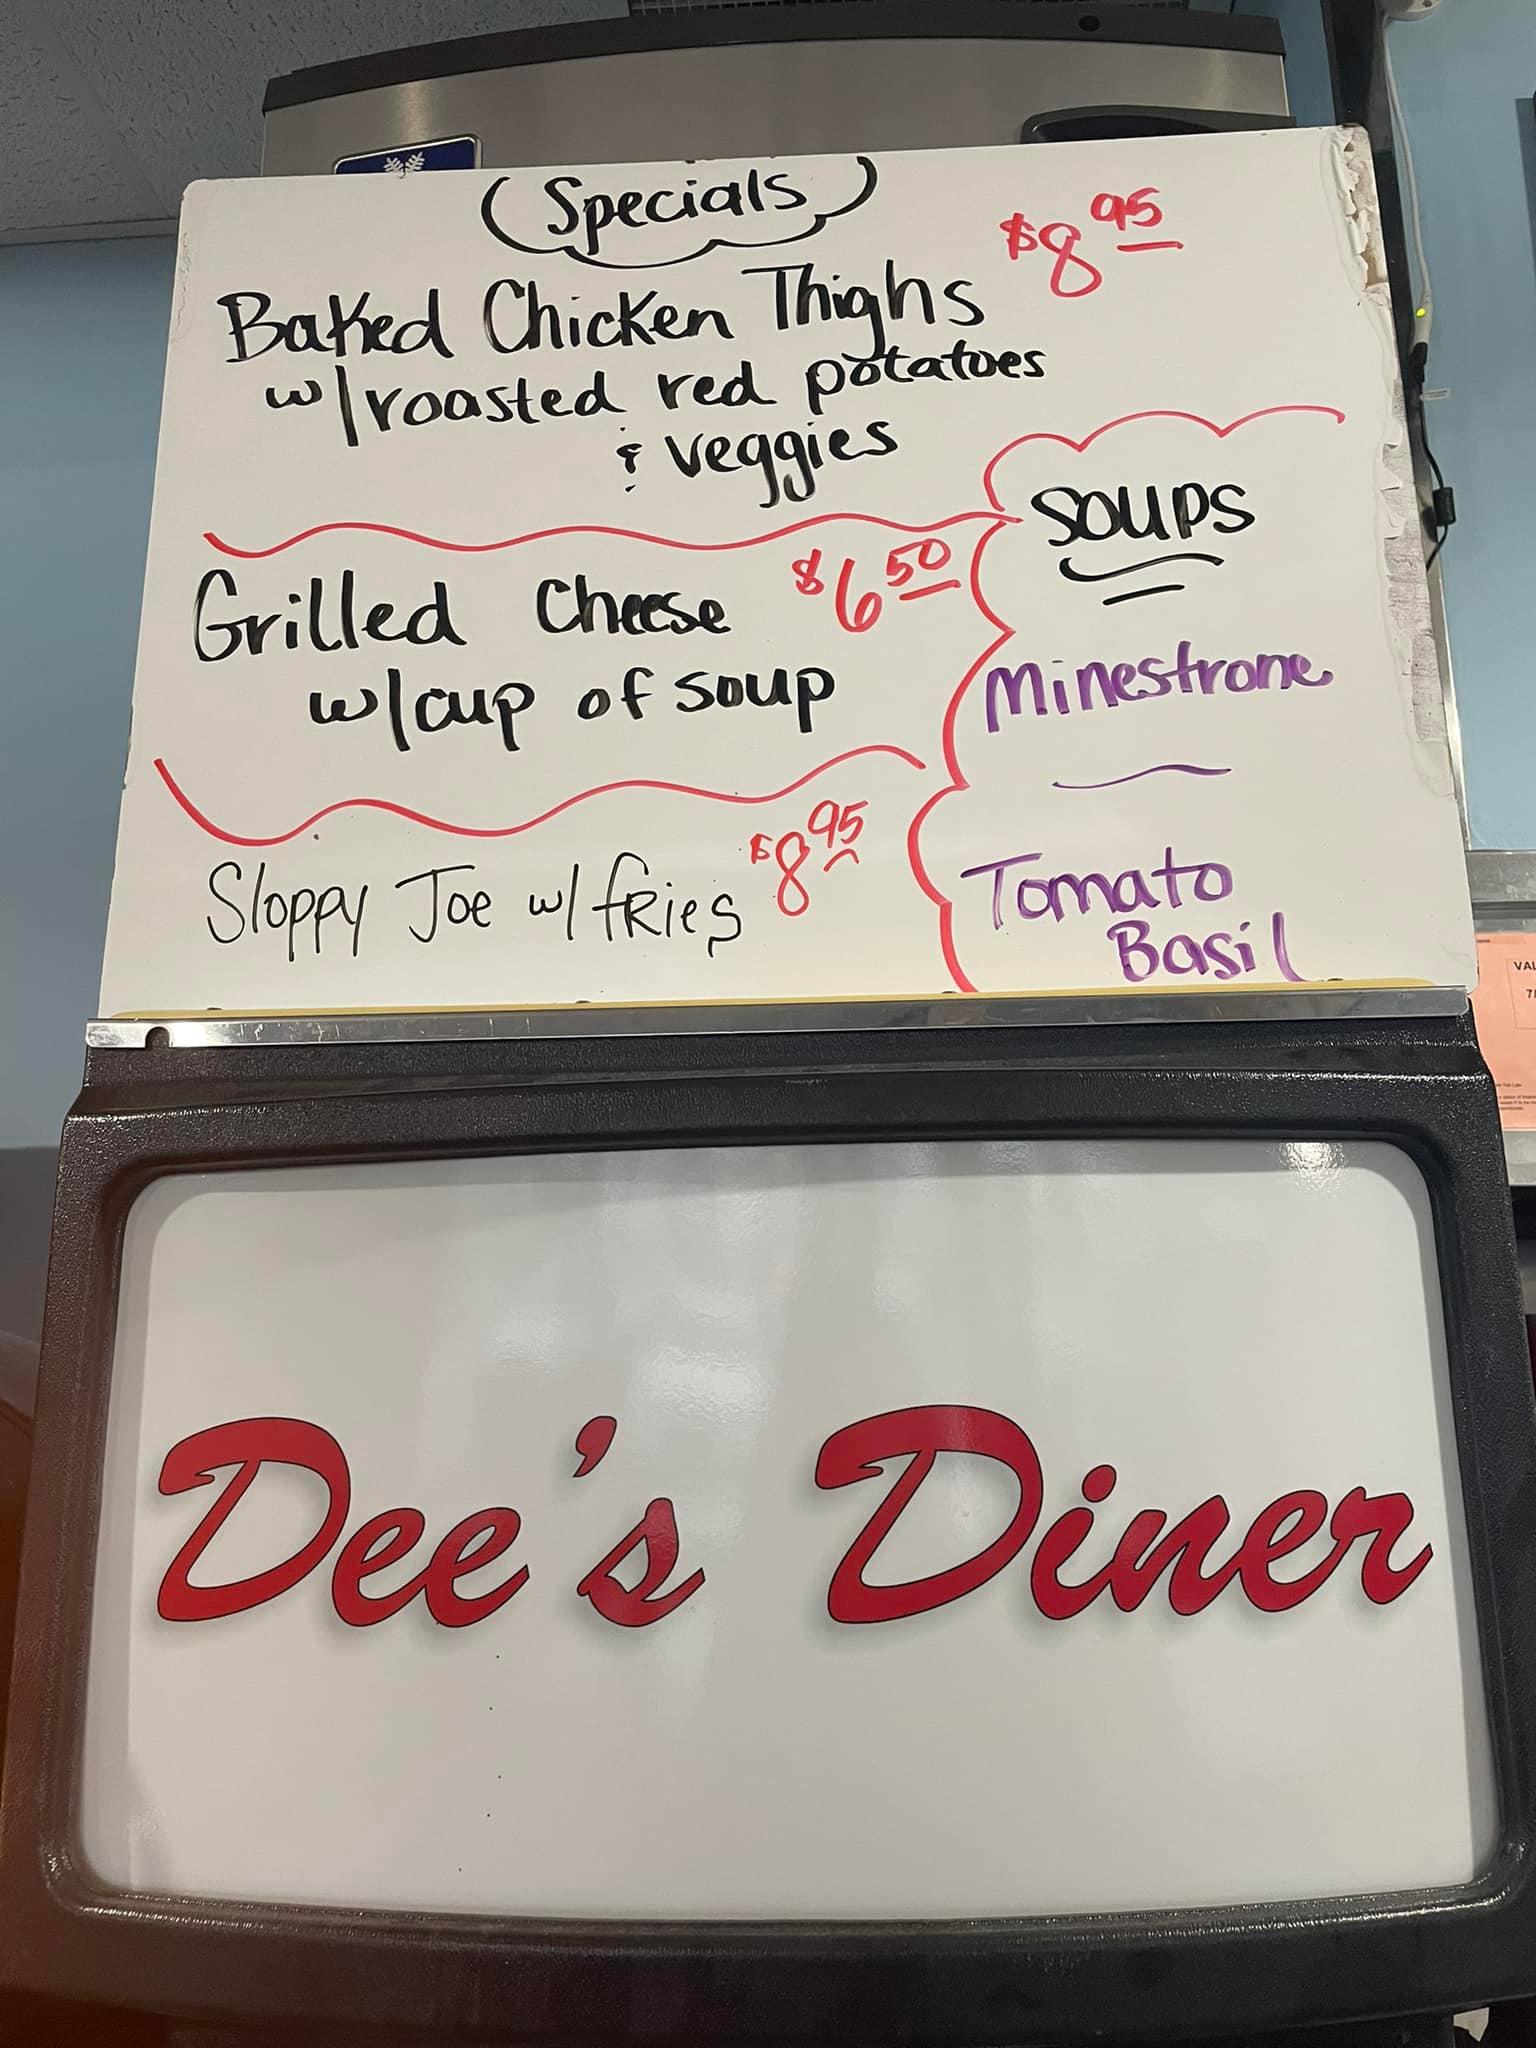 Specials
Baked Chicken Thighs $8.95
w/roasted red potatoes
& veggies
Grilled Cheese $6.50
w/cup of soup
Sloppy Joe w/ fries $8.95
SOUPS
Minestrone
Tomato
Basil
Dee's Diner